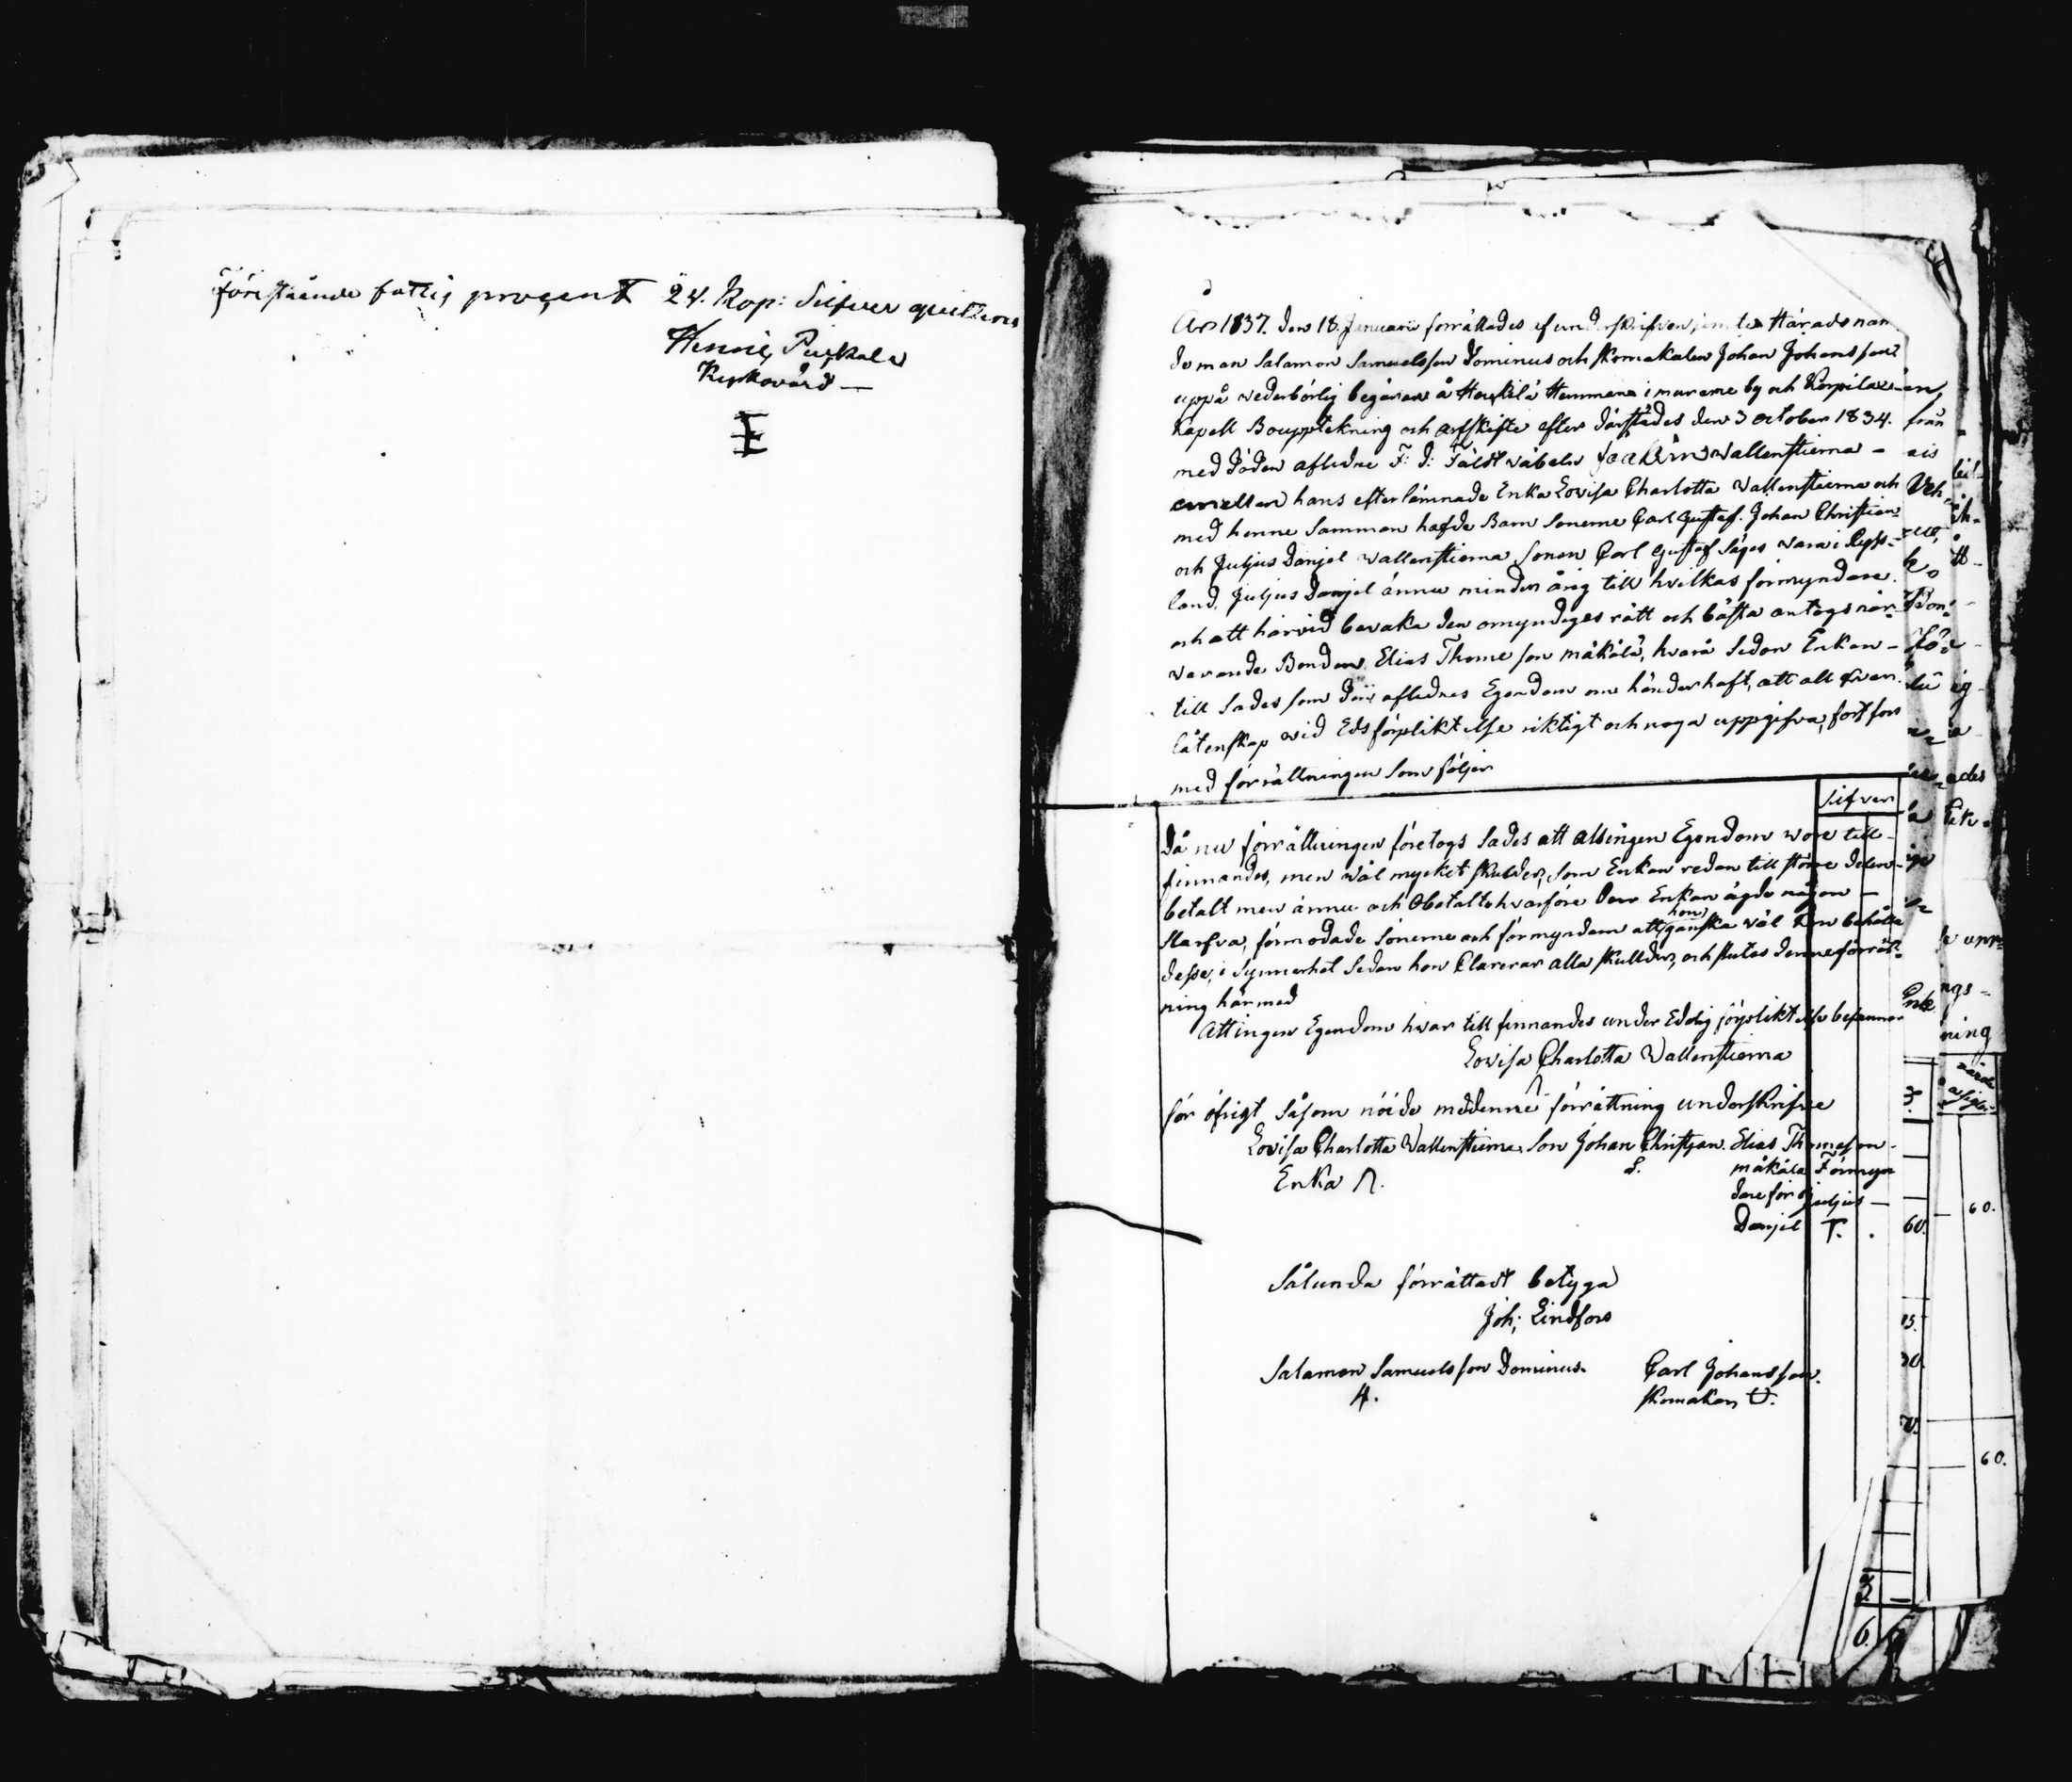 Förestående fattig procent 24. Kop: Silfver quitteras
Henric Purkala
Kyrkovärd —
År 1837. den 18. Januarii förrättades af underskrifven jemte Härads näm
deman Salamon Samuelsson Dominus och skomakaren Johan Johansson
uppå vederbörlig begäran å Heikilä Hemmana i murame by och Korpilax
Kapell Bouppteckning och arfskifte efter därstädes den 3 October 1834.
med döden aflidne F: d: Fältväbeln Joakim Wallenstierna -
emellan hans efterlämnade Enka Lovisa Charlotta Wallenstierna och
med henne Samman hafde Barn Sönerne Carl Gustaf. Johan Christian
och Juljus Danjel Wallenstierna Sonen Carl Gustaf säges vara i Ryss-
land, Juljus Danjel ännu minder årig till hvilkas förmyndare.
och att härvid bevaka den omyndiges rätt och bästa antogs när-
varande Bonden Elias Thomeson mäkälä, hvarå sedan Enkan -
till Sades som den aflidnes Egendom om händer haft, att all qvar
låtenskap vid Edsförpliktelse riktigt och noga uppgifva, fortfors
med förrättningen som följer
Silfver
Då nu förrättningen företogs Sades att Allsingen Egendom vore till-
finnandes, men väl mycket skulder, som Enkan redan till större delen
betalt men ännu och Obetalte hvarföre Om Enkan ägde någon —
Slarfva, förmodade Sönerne och förmyndaren att hon ganska väl kan behålla
desse, i Synnerhet Sedan hon Clarerar alla skullder, och slutes denne förrätt-
ning härmed
Attingen Egendom hvar till finnandes under Edelig förpliktelse
Lovisa Charlotta Wallenstierna
för öfrigt Såsom nöide med denne förrättning underskrifve
Lovisa Charlotta Wallenstierna Son Johan Christjan Elias Thomeson
Enka
mäkälä Förmyn
dare för Juljus —
Danjel T.
Sålunda förrättadt betyga
Joh; Lindfors
Salamon Samuelsson Dominus Carl Johansson.
Skomakare
60.
60.
60.